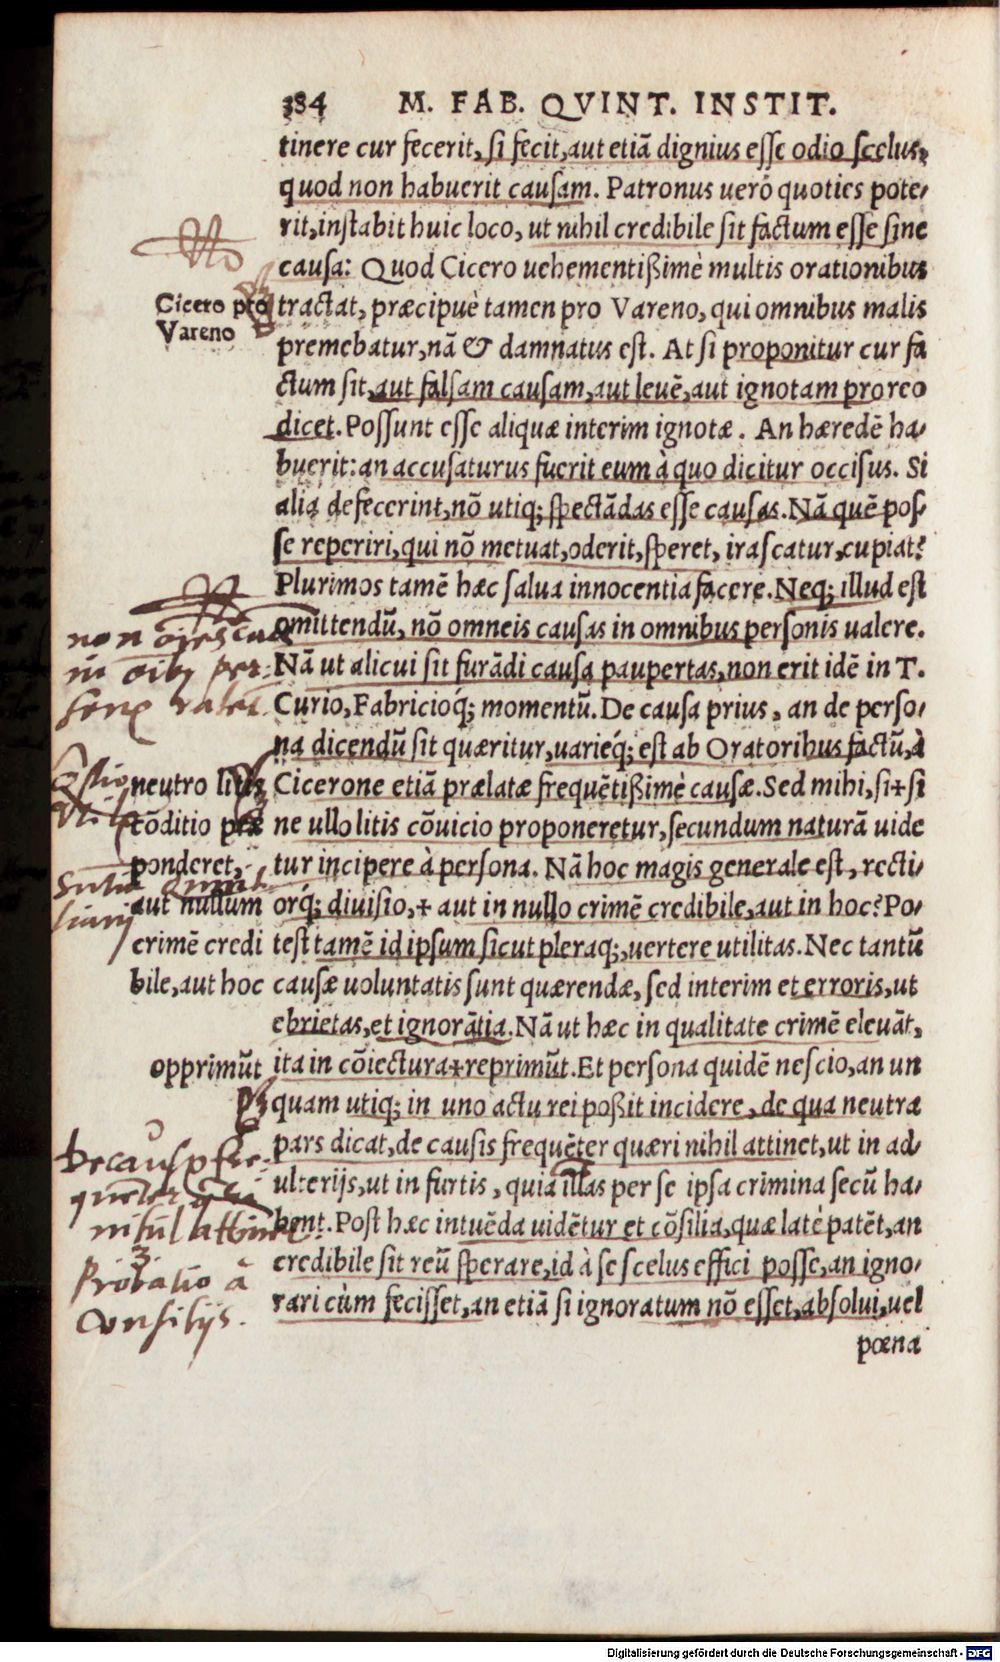 384 M. FAB. QVINT. INSTIT.
tinere cur fecerit, si fecit, aut etiā dignius esse odio scelus,
quod non habuerit causam. Patronus uerò quoties pote-
rit, instabit huic loco, ut nihil credibile sit factum esse sine
causa: Quod Cicero uehementißimè multis orationibus
Cicero pro
Vareno
tractat, præcipuè tamen pro Vareno, qui omnibus malis
premebatur, nā & damnatus est. At si proponitur cur fa
ctum sit, aut falsam causam, aut leuē, aut ignotam pro reo
dicet. Possunt esse aliquæ interim ignotæ. An hæredē ha-
buerit: an accusaturus fuerit eum à quo dicitur occisus. Si
alia defecerint, nō utiq; spectādas esse causas. Nā quē pos-
se reperiri, qui nō metuat, oderit, speret, irascatur, cupiat?
Plurimos tamē hæc salua innocentia facere. Neq; illud est
omittendū, nō omneis causas in omnibus personis ualere.
Nā ut alicui sit furādi causa paupertas, non erit idē in T.
Curio, Fabricioq́; momentū. De causa prius, an de perso-
na dicendū sit quæritur, uarieq́; est ab Oratoribus factū, à
Cicerone etiā prælatæ frequētißimè causæ. Sed mihi, si + si
ne ullo litis cōuicio proponeretur, secundum naturā uide
tur incipere à persona. Nā hoc magis generale est, recti-
orq́; diuisio, + aut in nullo crimē credibile, aut in hoc? Po-
test tamē id ipsum sicut pleraq;, uertere utilitas. Nec tantū
causæ uoluntatis sunt quærendæ, sed interim et erroris, ut
ebrietas, et ignorātia. Nā ut hæc in qualitate crimē eleuāt,
ita in cōiectura + reprimūt. Et persona quidē nescio, an un
quam utiq; in uno actu rei poßit incidere, de qua neutra
pars dicat, de causis frequēter quæri nihil attinet, ut in ad-
ulterijs, ut in furtis, quia illas per se ipsa crimina secū ha-
bent. Post hæc intuēda uidētur et cōsilia, quæ latè patēt, an
credibile sit reū sperare, id à se scelus effici posse, an igno-
rari cùm fecisset, an etiā si ignoratum nō esset, absolui, uel
pœna
neutro litis
cōditio præ
ponderet,
aut nullum
crimē credi
bile, aut hoc
opprimūt
No
non
in oib9 per-
sonis
nihil attinet
Probatio à
Consilijs.
Digitalisierung gefördert durch die Deutsche Forschungsgemeinschaft - DFG